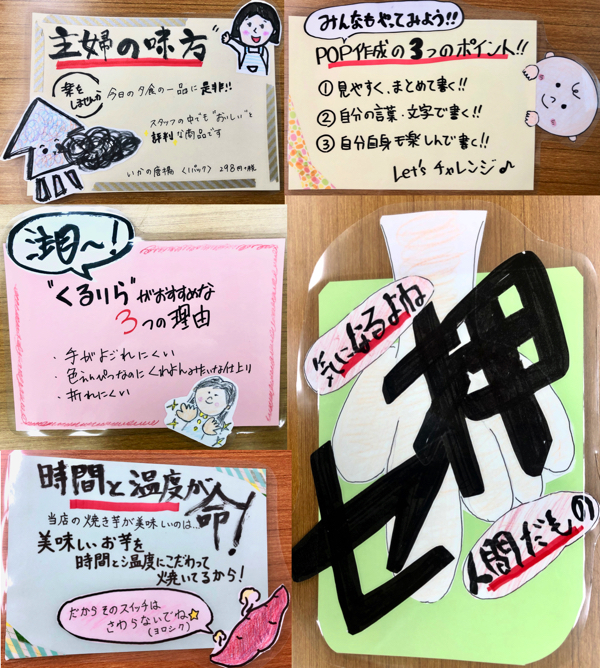 主婦の味方
楽をしませんか
今日の夕食の一品に是非!!
スタッフの中でも"おいしい"と
評判な商品です
いかの唐揚 〈1パック〉 298円+税
みんなもやってみよう!!
POP作成の3つのポイント!!
①見やすく、まとめて書く!!
②自分の言葉・文字で書く!!
③自分自身も楽しんで書く!!
Let's チャレンジ♪
注目〜!
"くるりら"がおすすめな
3つの理由
・手がよごれにくい
・色えんぴつなのにくれよんみたいな仕上り
・折れにくい
気になるよね
押
セ
人間だもの
時間と温度が
命!
当店の焼き芋が美味しいのは…
美味しいお芋を
時間と温度にこだわって
焼いてるから!
だからそのスイッチは
さわらないでね☆
(ヨロシク)